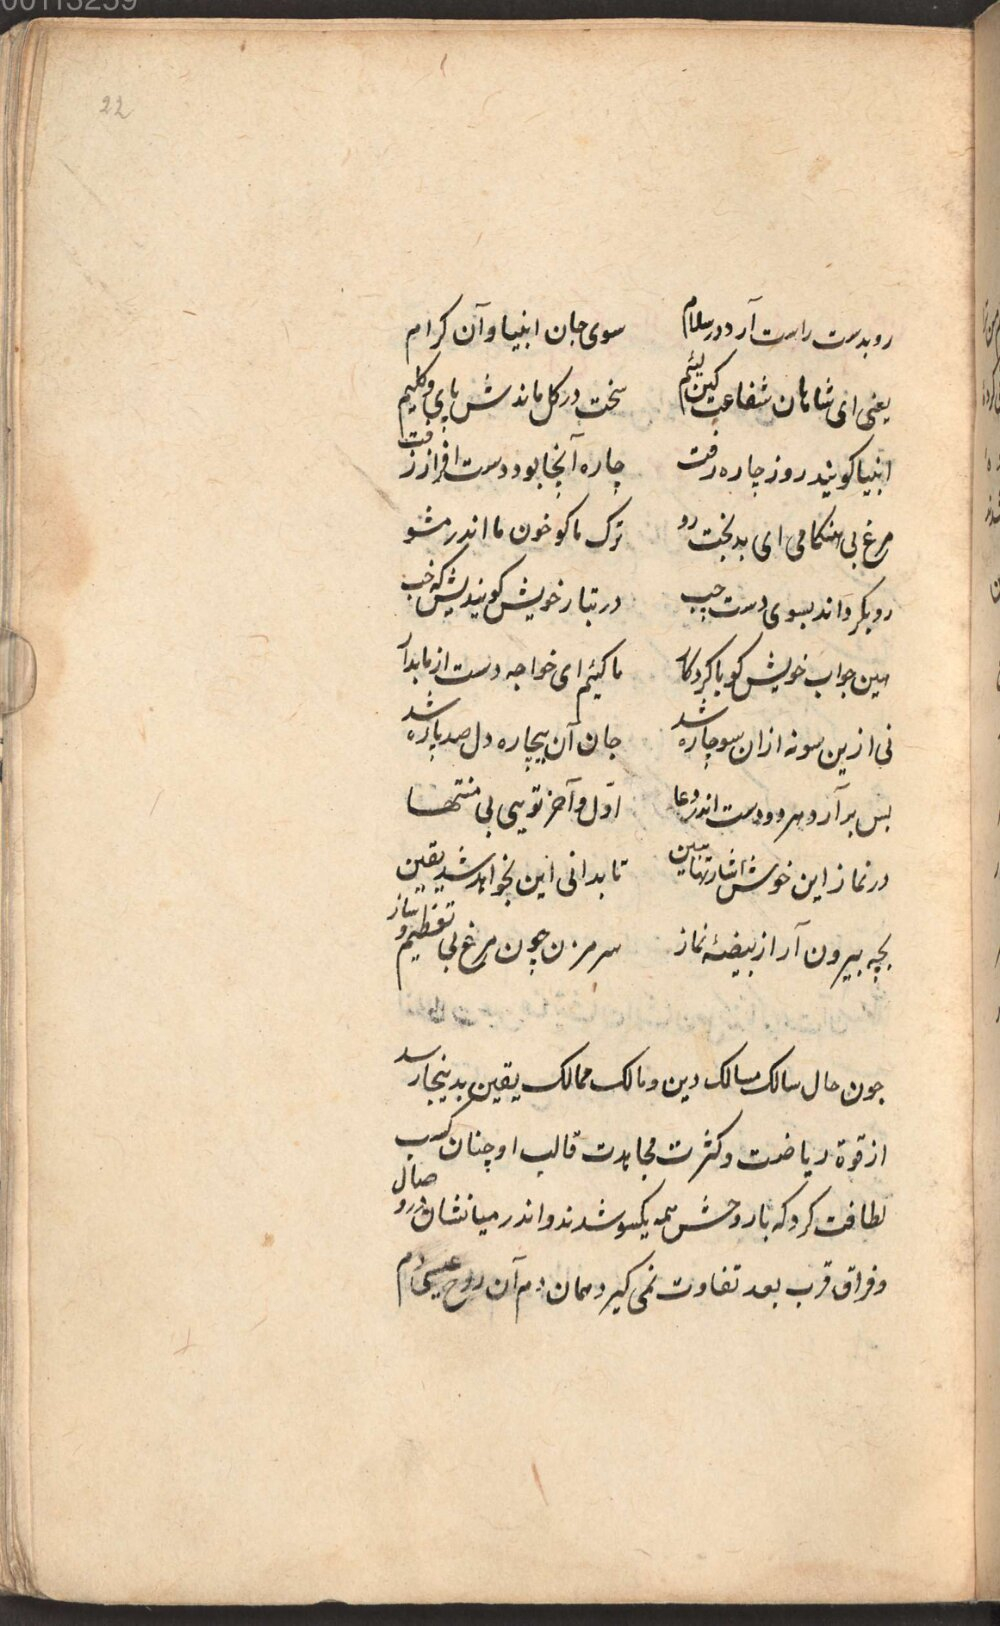 00113259
22
رو بدست راست آرد در سلام سوی جان انبیا و آن کرام
یعنی ای شاهان شفاعت کین لئیم سخت در کل ماندش پای و کلیم
انبیا کویند روز چاره رفت چاره آنجا بود و دست افزار زفت
مرغ بی هنکامی ای بدبخت رو ترک ما کو خون ما اندر مشو
رو بکرداند بسوی دست چپ در تبار خویش کویندیش که خپ
هین جواب خویش کو با کردکار ما کئیم ای خواجه دست از ما بدار
نی ازین سو نه ازان سو چاره شد جان آن بیچاره دل صد پاره شد
بس برآرد هر دو دست اندر دعا
اول و آخر تویی بی منتها
در نماز این خوش اشارتها ببین تا بدانی این بخواهد شد یقین
بچه بیرون آر از بیضۀ نماز سر مزن چون مرغ بی تعظیم و ساز
جون حال سالک مسالک دین و مالک ممالک یقین بدینجا رسد
از قوة ریاضت و کثرت مجاهدت قالب او چنان کسب
لطافت کرد که با روحش همه یکسو شدند و اندر میانشان در وصال
و فراق قرب بعد تفاوت نمی کیرد همان دم آن روح عیسی دم